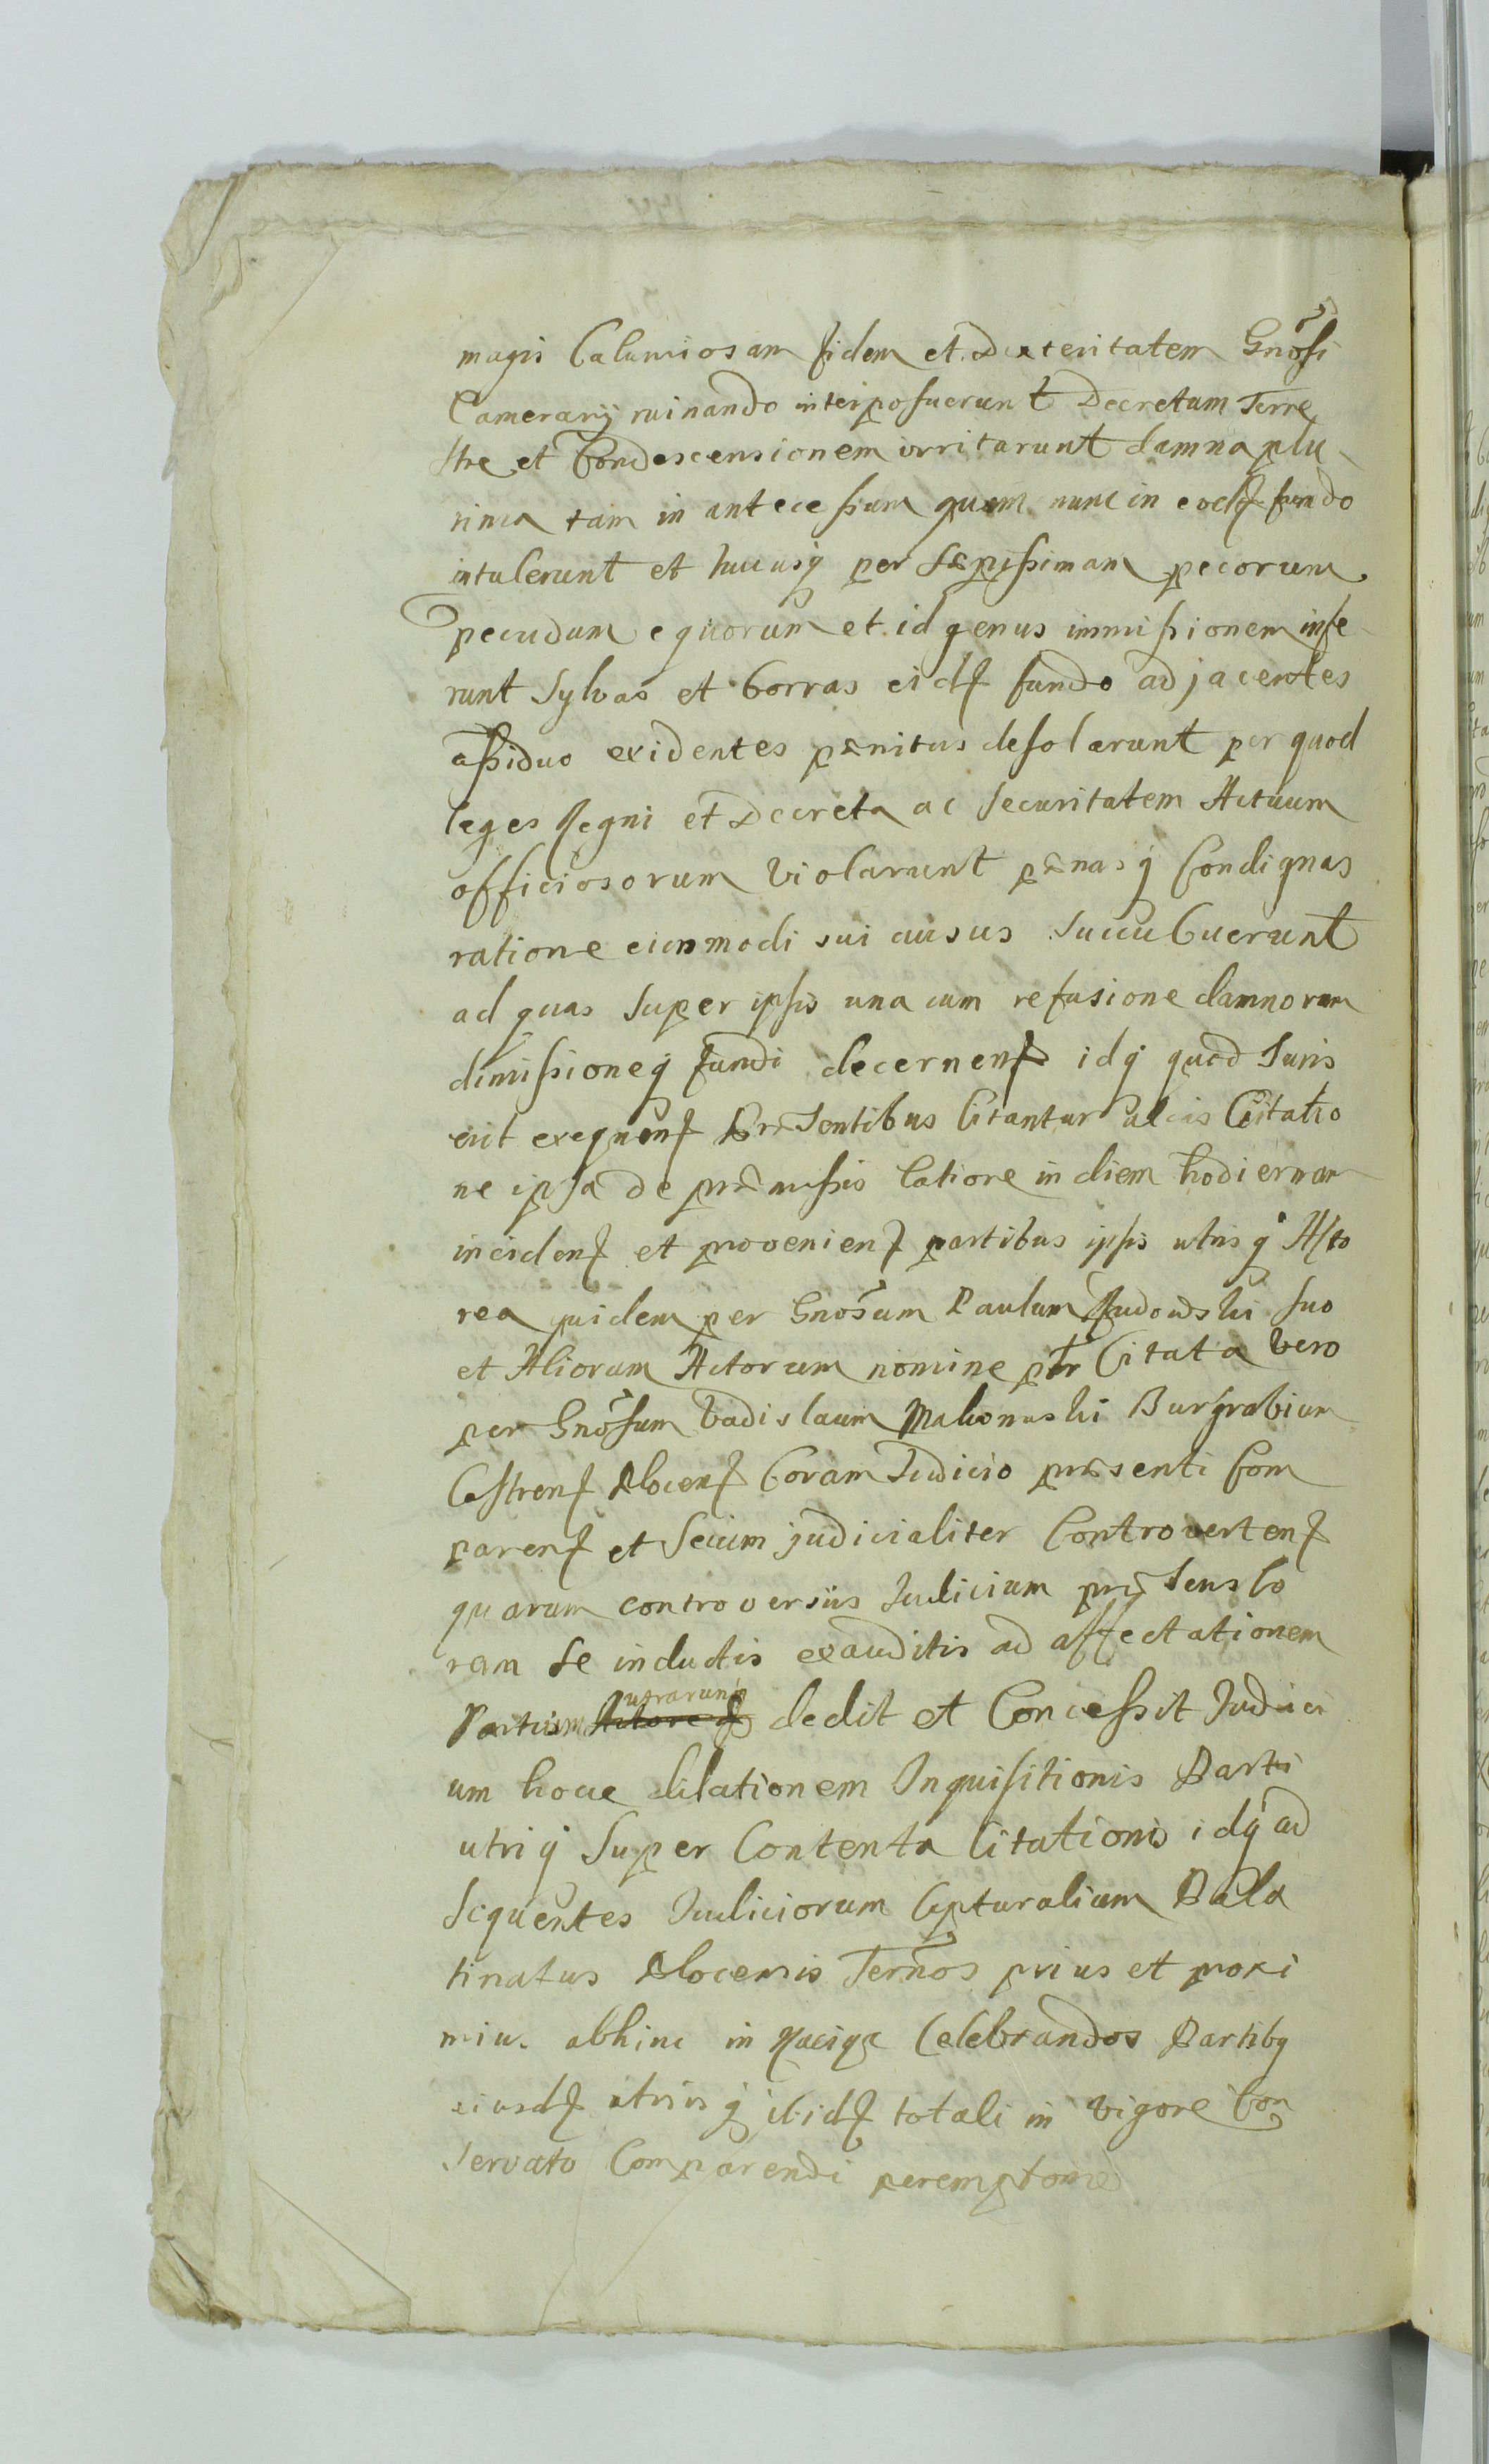 magis Calumiosam fidem et Dexteritatem Gnosi
Camerarij ruinando interposuerunt Decretum Terre
stre et Condescensionem irritarunt damna plu
rima tam in antecessum quam nunc in eod fundo
intulerunt et hucusq per sæpissimam pecorum
pecudum equorum et id genus immissionem infe
runt Sylvas et borras eid fundo adjacentes
assiduo exidentes pænitus desolarunt per quod
leges Regni et Decreta ac Securitatem Actuum
officiosorum violarunt pænasq Condignas
ratione eiusmodi sui ausus succubuerunt
ad quas super ipsis una cum refusione damnorum
dimissioneq fundi decernen idq quod Juris
erit exequen Præsentibus Citantur alias Citatio
ne ipsa de præmissis latiore in diem hodiernam
inciden et provenien partibus ipsis utrisq Acto
rea quidem per Gnosum Paulum Rudowski suo
et Aliorum Actorum nomine ptr Citata vero
per Gnosum Vadislaum Makomaski Burgrabium
Castren Plocen Coram Judicio præsenti Com
paren et Secum judicialiter Controverten
quarum controversiis Judicium præsens Co
ram se inductis exauditis ad affectationem
Partium utrarumq dedit et Concessit Judici
um hocce dilationem Inquisitionis Parti
utriq Super Contenta Citationis idq ad
Sequentes Judiciorum Capturalium Pala
tinatus Plocensis Ternos prius et proxi
miu. abhinc in Raciąż Celebrandos Partibq
eiusd utrisq ibid totali in vigore Con
servato Comparendi peremptorie